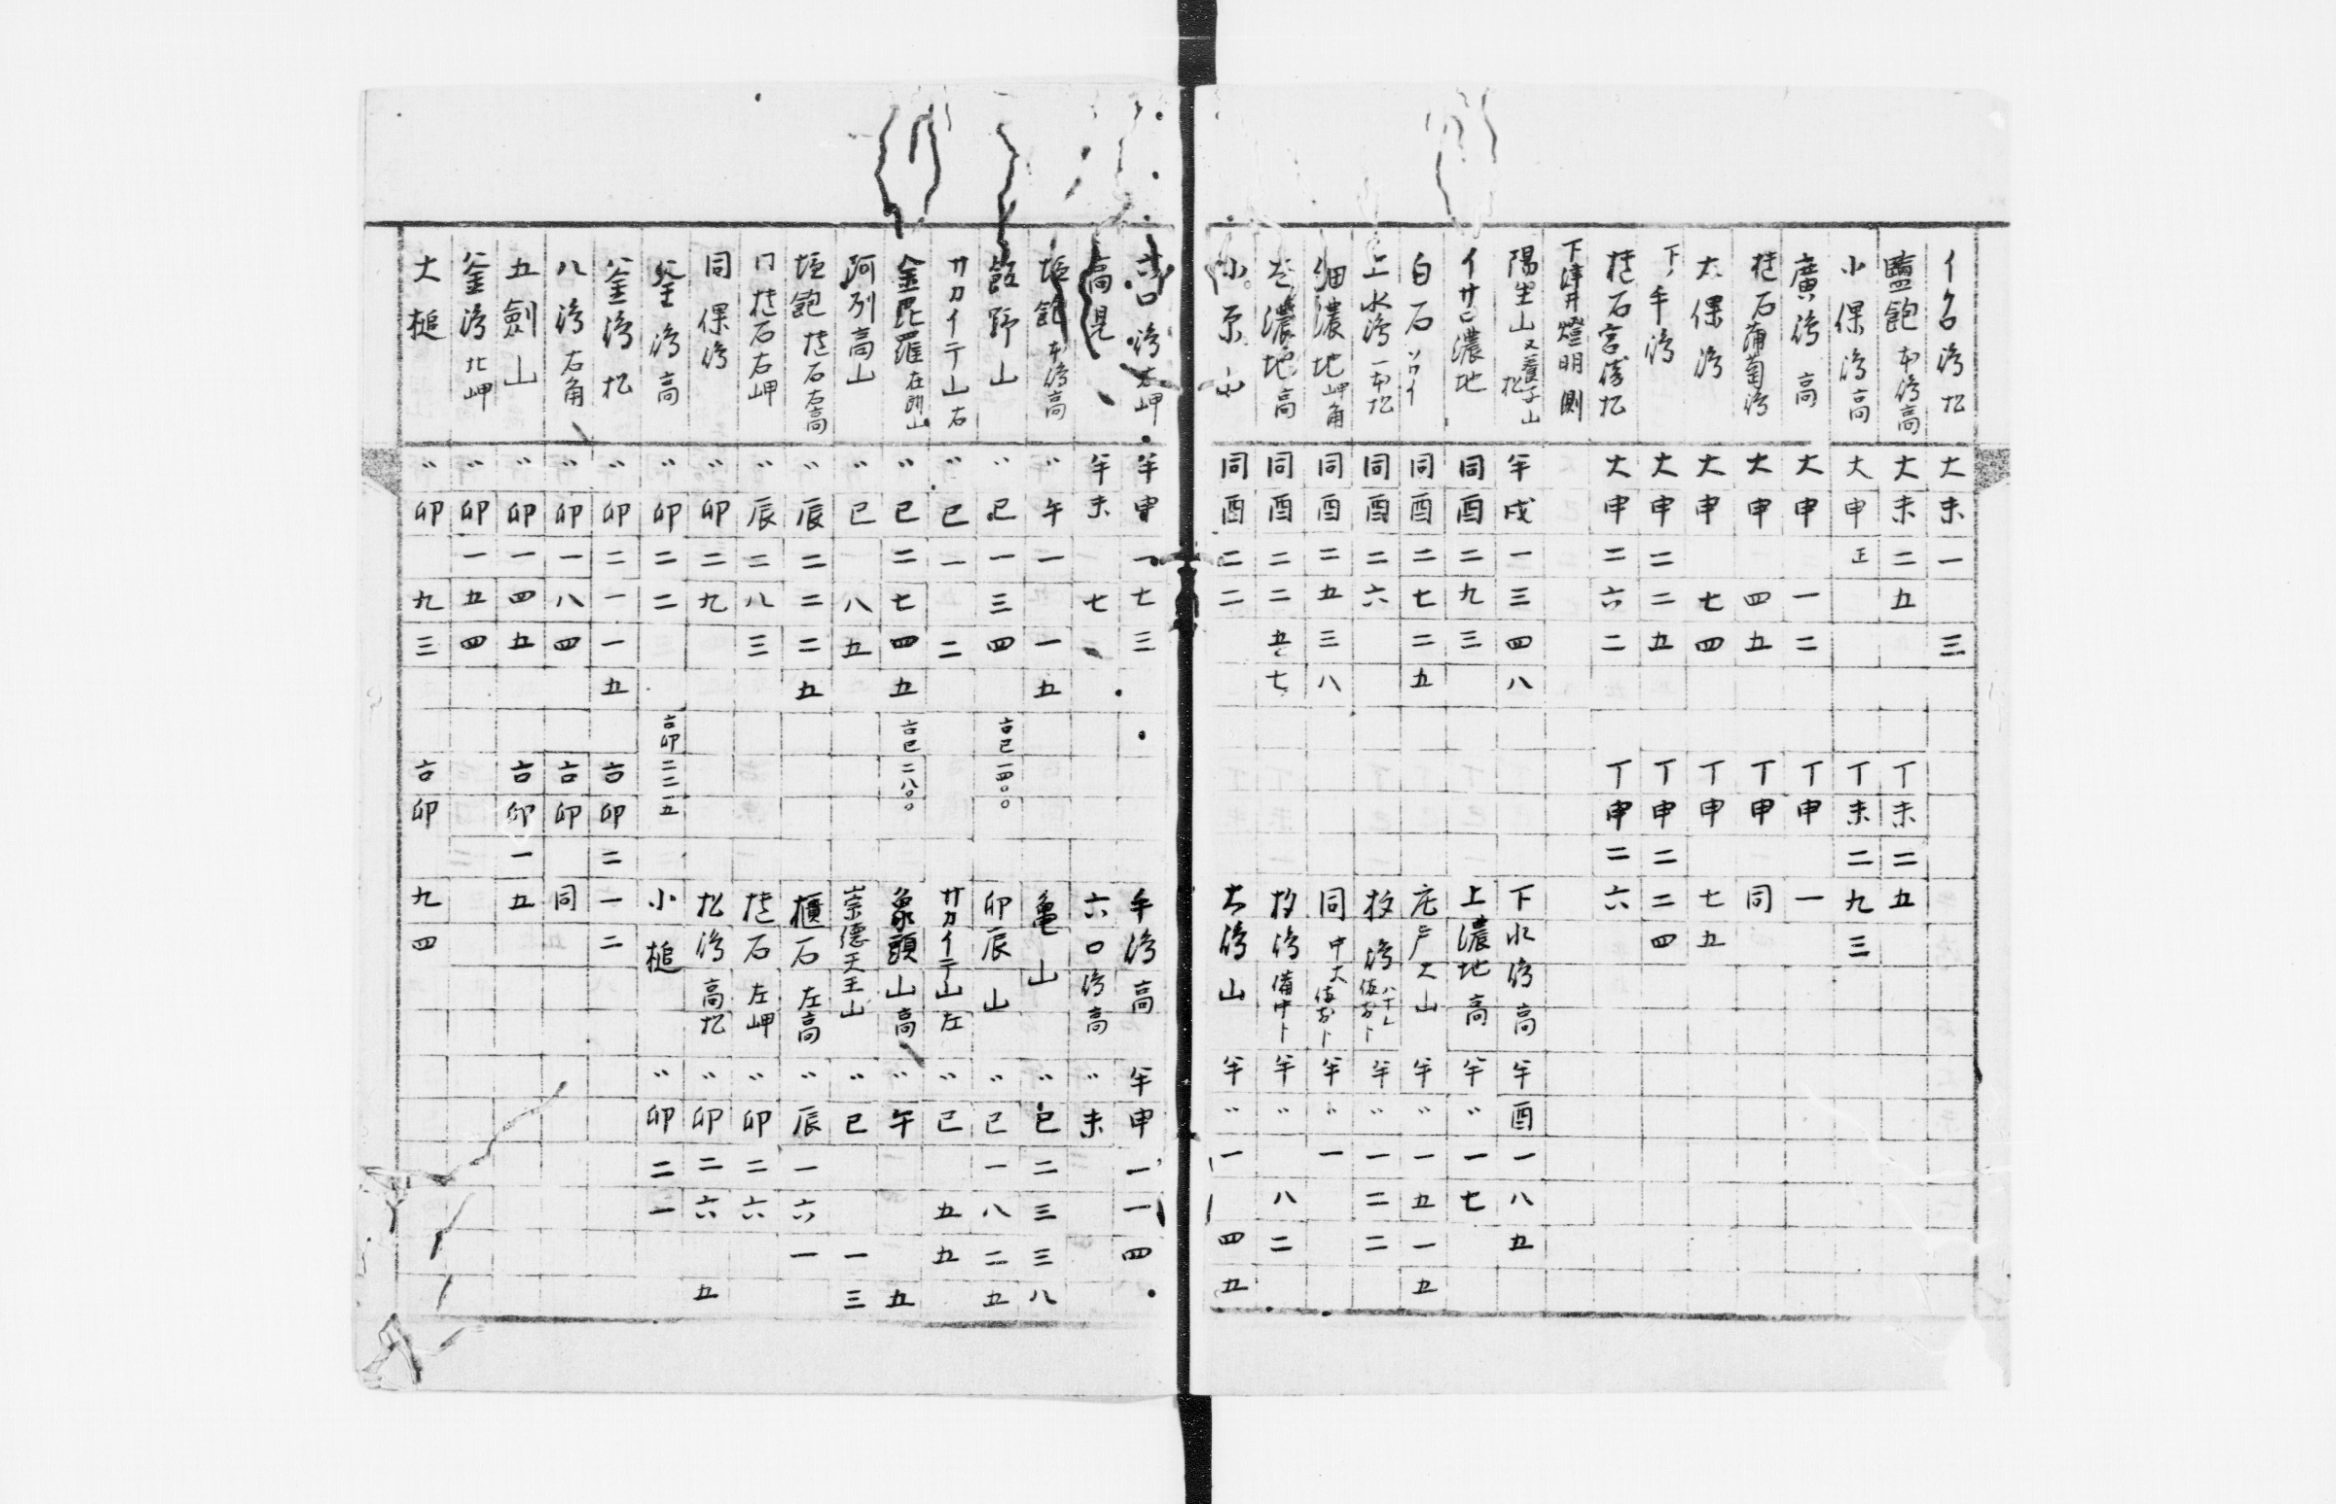 イクロ湾 松 大未一 三
鹽飽 本湾高 大未二五 丁未二五
小保湾高 大申正 丁未二九三
廣湾 高 大申 一二 丁申 一
櫃石葡萄湾 大申 四五 丁申 同
大保湾 大申 七四 丁申 七五
下ノ手湾 大申二二五 丁申二二四
櫃石宮傍松 大申二六二 丁申二六
下津井燈明側
陽生山又養子山松 牛戌一三四八 下水湾高 牛酉一八五
イサロ濃地 同酉二九三 上濃地高 牛〃一七
白石 ソワイ 同酉二七二五 庄戸大山 牛〃一五一五
上水湾一本松 同酉二六 牛〃一二二
細濃地岬角 同酉二五三八 同 牛〃一
濃地高 同酉二二五七 牛〃 八二
小原山 同酉二二 大湾山 牛〃一一四五
六口湾右岬 牛申一七三 牛湾高 牛申一一四
高見 牛未 七 六口湾高 〃未
塩飽本湾高 〃午一 一五 亀山 〃巳二三三八
飯野山 〃巳一三四 古巳一四〇〇 卯辰山 〃巳一八二五
サカイテ山右 〃巳一 二 サカイテ山左 〃巳 五五
金毘羅 〃巳二七四五 古巳二八〇〇 象頭山高 〃午 五
阿列高山 〃巳 八五 崇德天王山 〃巳 一三
塩飽櫃石右高 〃辰二二二五 櫃石左高 〃辰一六一
同櫃石右岬 〃辰二八三 櫃石左岬 〃卯二六
同保湾 〃卯二九 松湾高松 〃卯二六 五
釜湾高 〃卯二二 古卯二二一五 小槌 〃卯二一
釜湾松 〃卯二一一五 古卯二一二
八湾右角 〃卯一八四 古卯 同
五劍山 〃卯一四五 古卯一五
釜湾北岬 〃卯一五四
大槌 〃卯 九三 古卯 九四